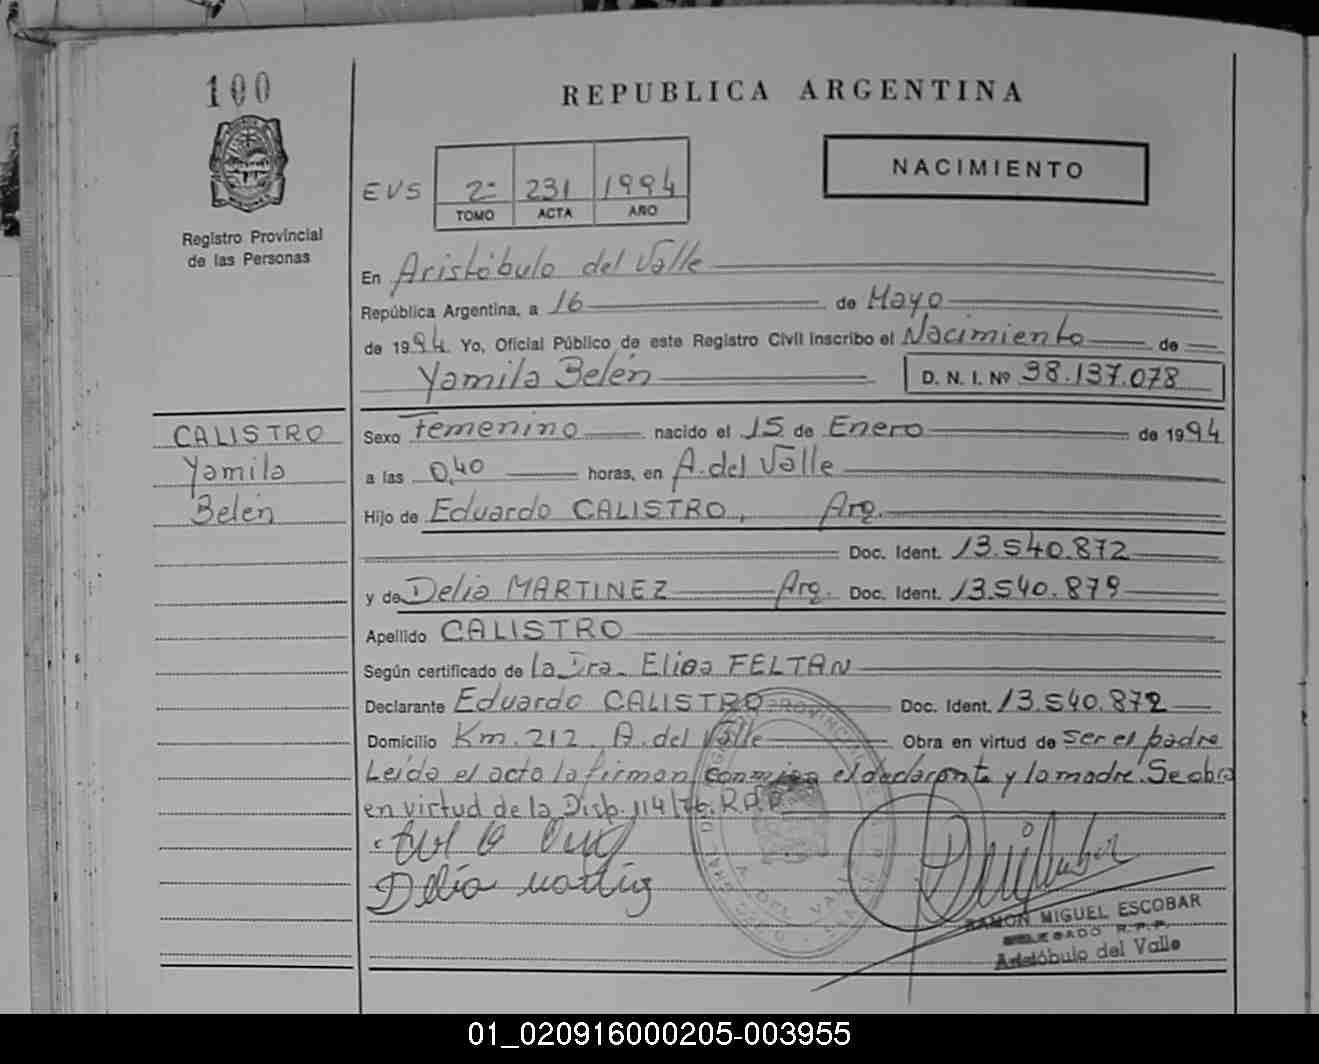 100
REPUBLICA ARGENTINA
NACIMIENTO
EVS 2º 231 1994
TOMO ACTA AÑO
Registro Provincial
de las Personas
En Aristóbulo del Valle
República Argentina, a 16 de Mayo
de 1994. Yo, Oficial Público de este Registro Civil inscribo el Nacimiento de
Yamila Belén D. N. I. Nº 38.137.078
CALISTRO
Yamila
Belén
Sexo Femenino nacido el 15 de Enero de 1994
a las 0,40 horas, en A. del Valle
Hijo de Eduardo CALISTRO, Arg.
Doc. Ident. 13.540.872
y de Delia MARTINEZ Arg. Doc. Ident. 13.540.879
Apellido CALISTRO
Según certificado de la Dra. Elisa FELTAN
Declarante Eduardo CALISTRO Doc. Ident. 13.540.872
Domicilio Km. 212. A. del Valle Obra en virtud de ser el padre
Leída el acta la firman conmigo el declarante y la madre. Se obra
en virtud de la Disp. 114/76. R.P.P.
Delia
RAMON MIGUEL ESCOBAR
DELEGADO R.P.P.
Aristóbulo del Valle
01_020916000205-003955